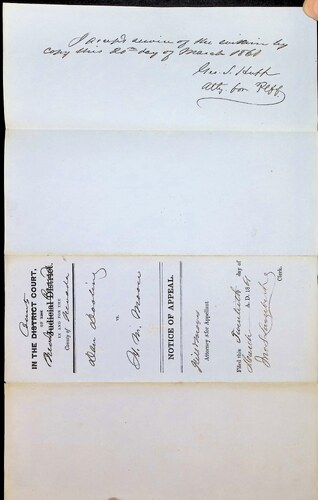 I accept service of the within by
copy this 20th day of March 1868
Geo. S. Hupp
Atty. for Plff
County
IN THE DISTRICT COURT,
OF THE
Judicial District
IN AND FOR THE
County of Nevada
Dan Dooling
vs.
W. W. Moore
NOTICE OF APPEAL.
Attorney for Appellant
Filed this Twentieth day of
March A. D. 186
Clerk.